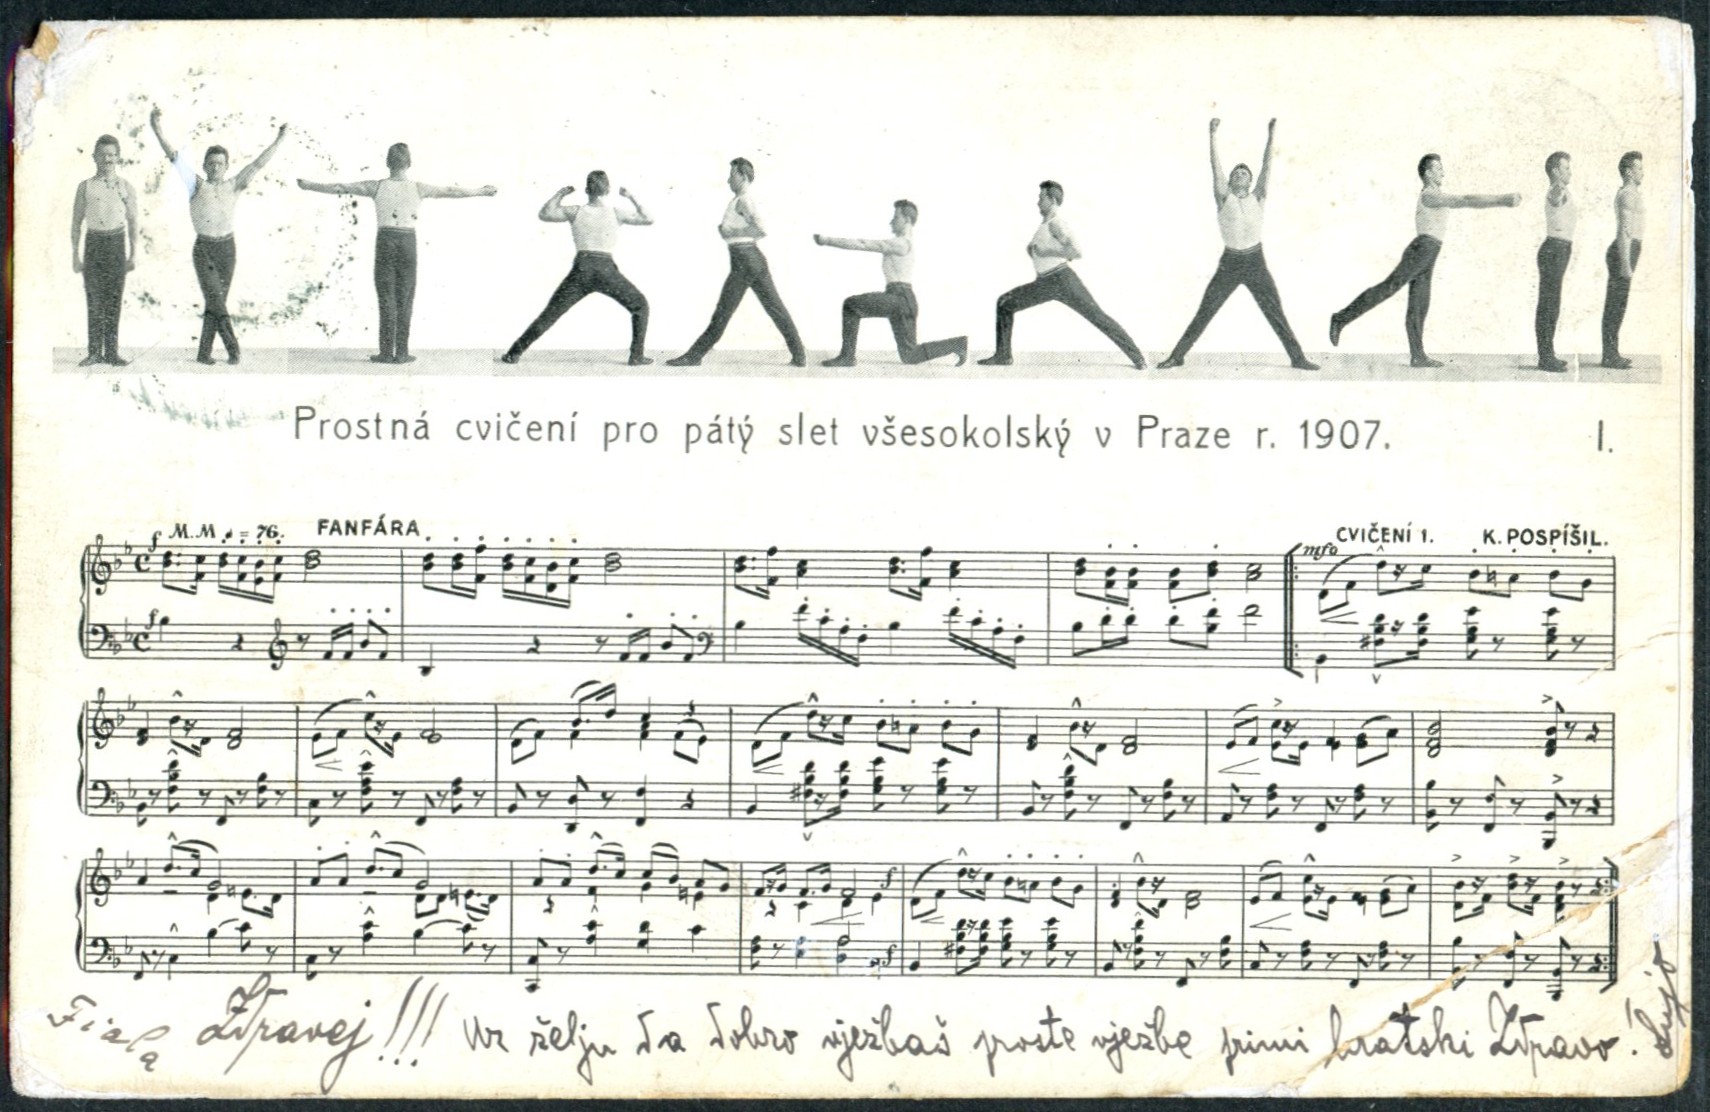 Prostná cvičení pro pátý slet všesokolský v Praze r. 1907. I.
f M.M ♩ = 76. FANFÁRA
mfo CVIČENÍ 1. K. POSPÍŠIL.
f
f
f
Fiala Zdravej!!! Uz želju da dobro vježbaš proste vježbe primi bratski Zdravo!